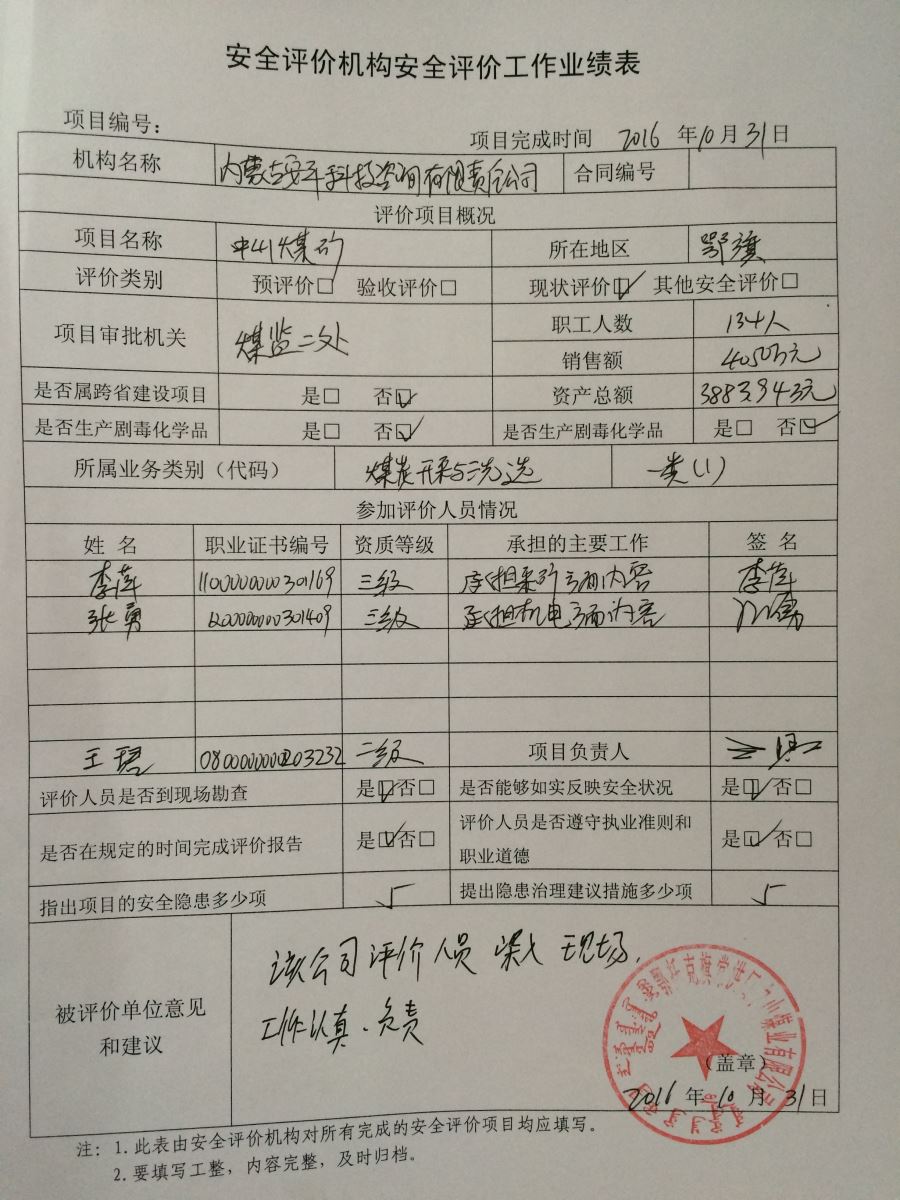 安全评价机构安全评价工作业绩表
项目编号：
项目完成时间 2016 年10月31日
机构名称 内蒙古安平科技咨询有限责任公司 合同编号
评价项目概况
项目名称 中山煤矿 所在地区 鄂旗
评价类别 预评价□ 验收评价□ 现状评价☑ 其他安全评价□
项目审批机关 煤监二处 职工人数 134人
销售额 4050万元
是否属跨省建设项目 是□ 否☑ 资产总额 3883.943元
是否生产剧毒化学品 是□ 否☑ 是否生产剧毒化学品 是□ 否☑
所属业务类别（代码） 煤炭开采与洗选 一类(1)
参加评价人员情况
姓 名 职业证书编号 资质等级 承担的主要工作 签 名
李萍 1100000000301169 三级 承担采矿方面内容 李萍
张勇 1200000000301409 三级 承担机电方面内容
王珺 0800000000203232 二级 项目负责人
评价人员是否到现场勘查 是☑否□ 是否能够如实反映安全状况 是☑否□
是否在规定的时间完成评价报告 是☑否□ 评价人员是否遵守执业准则和
职业道德 是☑否□
指出项目的安全隐患多少项 5 提出隐患治理建议措施多少项 5
被评价单位意见
和建议
该公司评价人员深入现场，
工作认真、负责
（盖章）
2016 年10 月 31日
注：1. 此表由安全评价机构对所有完成的安全评价项目均应填写。
2. 要填写工整，内容完整，及时归档。